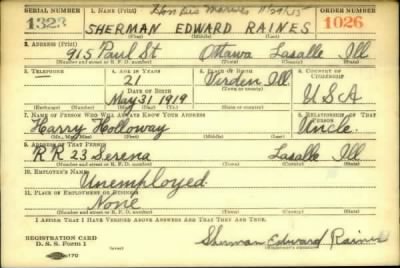 SERIAL NUMBER 1. NAME (Print) ORDER NUMBER
1323 SHERMAN EDWARD RAINES 1026
(First) (Middle) (Last)
2. ADDRESS (Print)
915 Paul St Ottawa Lasalle Ill
(Number and street or R. F. D. number) (Town) (County) (State)
3. TELEPHONE 4. AGE IN YEARS 5. PLACE OF BIRTH 6. COUNTRY OF CITIZENSHIP
21 Virden Ill.
DATE OF BIRTH
May 31 1919 USA
(Exchange) (Number) (Mo.) (Day) (Yr.) (State or country)
7. NAME OF PERSON WHO WILL ALWAYS KNOW YOUR ADDRESS 8. RELATIONSHIP OF THAT PERSON
Harry Holloway Uncle.
(Mr., Mrs., Miss) (First) (Middle) (Last)
9. ADDRESS OF THAT PERSON
RR 23 Serena Lasalle Ill
(Number and street or R. F. D. number) (Town) (County) (State)
10. EMPLOYER'S NAME
Unemployed.
11. PLACE OF EMPLOYMENT OR BUSINESS
None
(Number and street or R. F. D. number) (Town) (County) (State)
I AFFIRM THAT I HAVE VERIFIED ABOVE ANSWERS AND THAT THEY ARE TRUE.
REGISTRATION CARD
D. S. S. Form 1 Sherman Edward Raines
(over) (Registrant's signature)